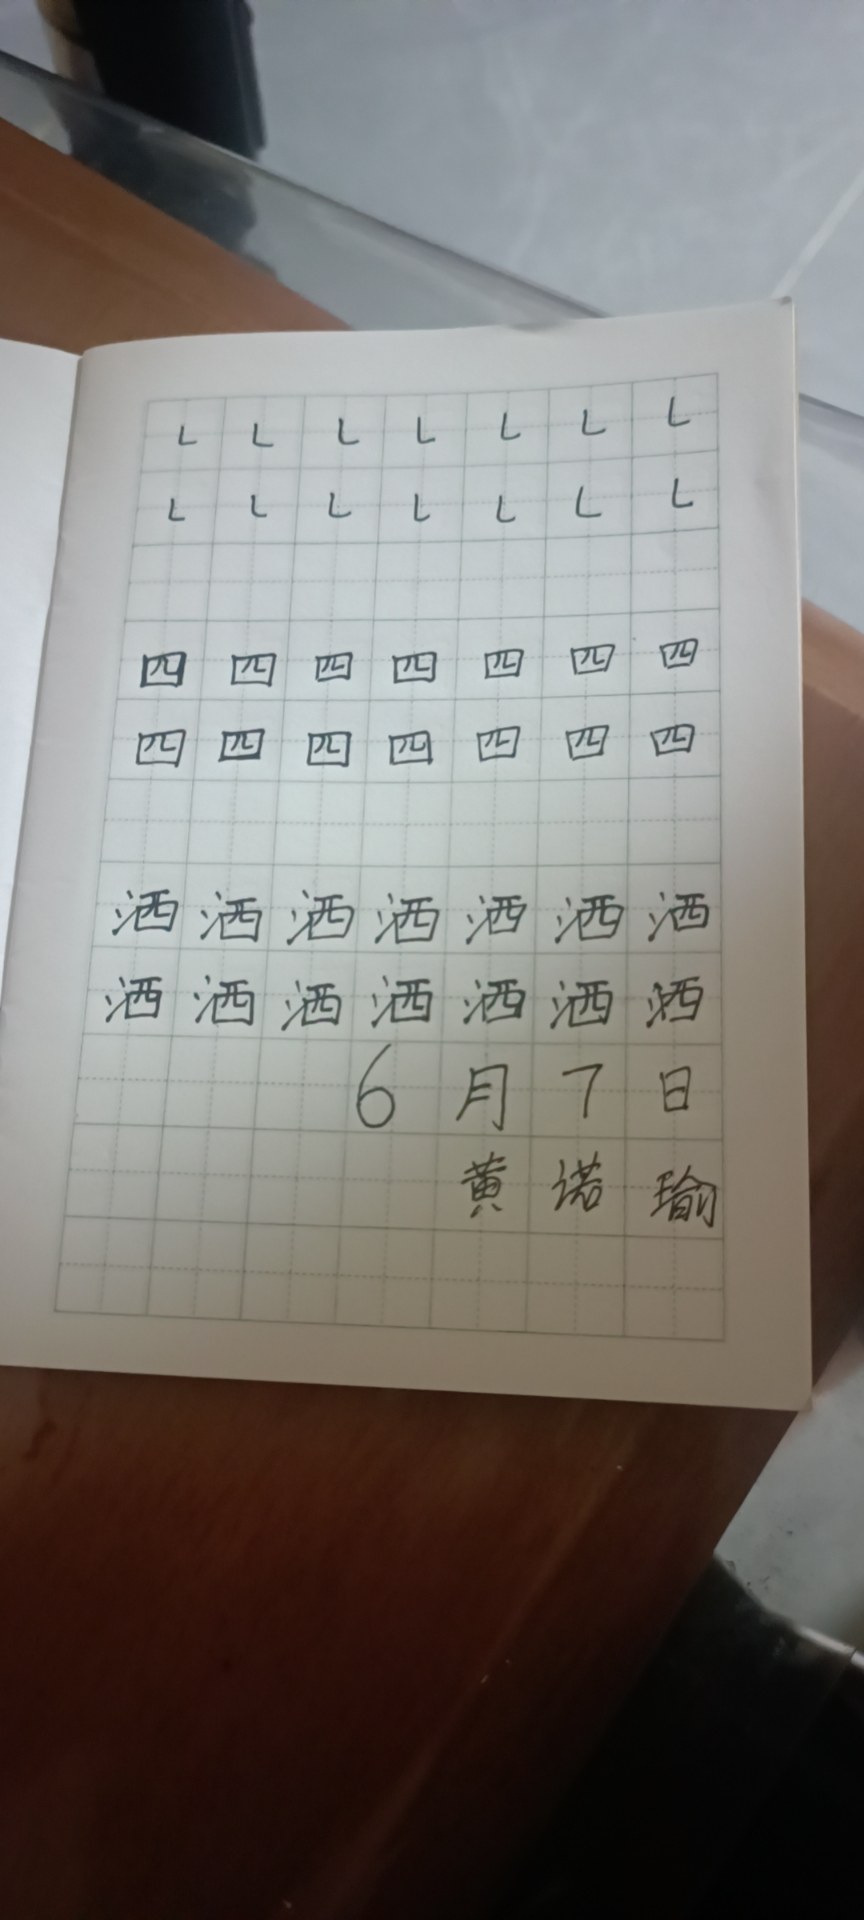 ㇄ ㇄ ㇄ ㇄ ㇄ ㇄ ㇄
㇄ ㇄ ㇄ ㇄ ㇄ ㇄ ㇄
四 四 四 四 四 四 四
四 四 四 四 四 四 四
洒 洒 洒 洒 洒 洒 洒
洒 洒 洒 洒 洒 洒 洒
6 月 7 日
黄 诺 瑜